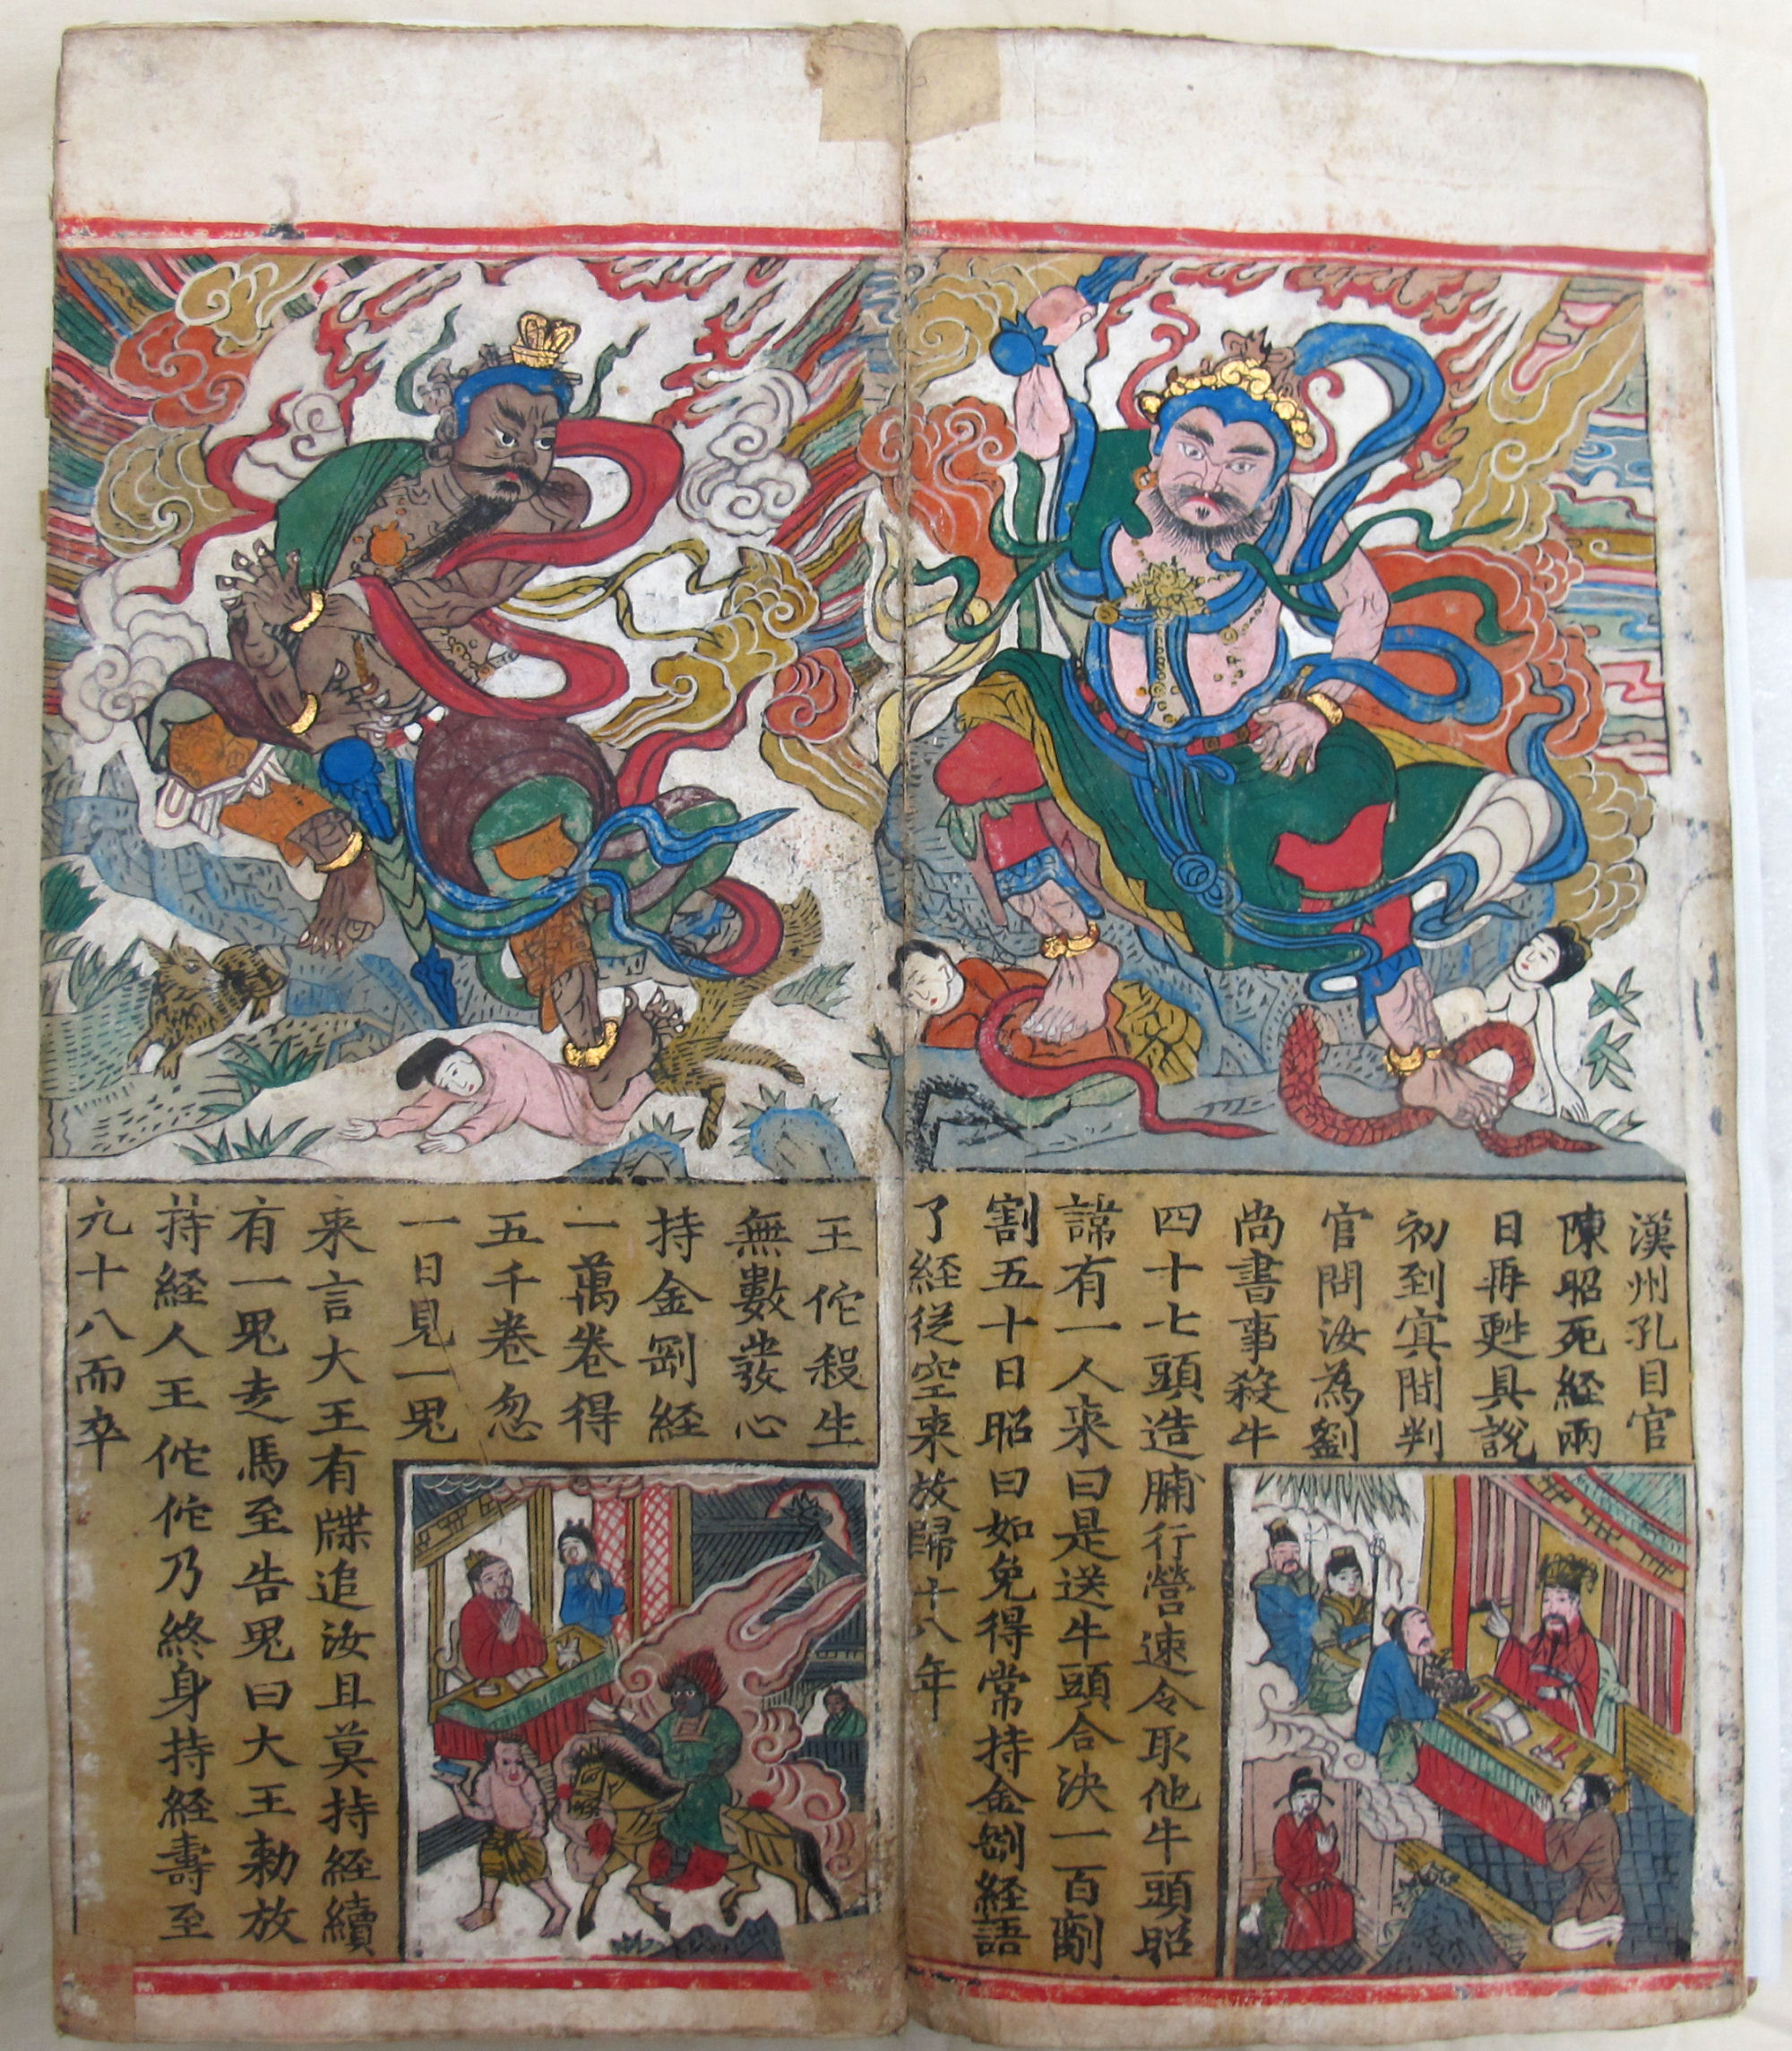 漢州孔目官
陳昭死經兩
日再甦具説
初到冥間判
官問汝為劉
尚書事殺牛
四十七頭造脯行營速令取他牛頭昭
諦有一人来曰是送牛頭合決一百劄
割五十日昭曰如免得常持金剛経語
了経従空来放歸十八年
王佗殺生
無數發心
持金剛経
一萬卷得
五千卷忽
一日見一鬼
来言大王有牒追汝且莫持経續
有一鬼走馬至告鬼曰大王勅放
持経人王佗佗乃終身持経壽至
九十八而卒